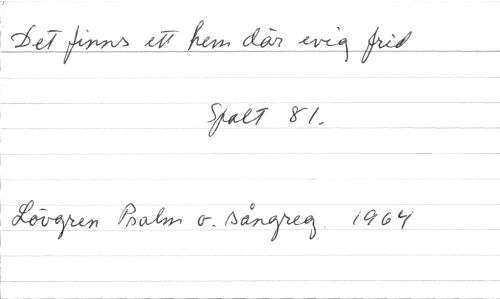 Det finns ett hem där evig frid
Spalt 81.
Lövgren Psalm o. sångreg. 1964